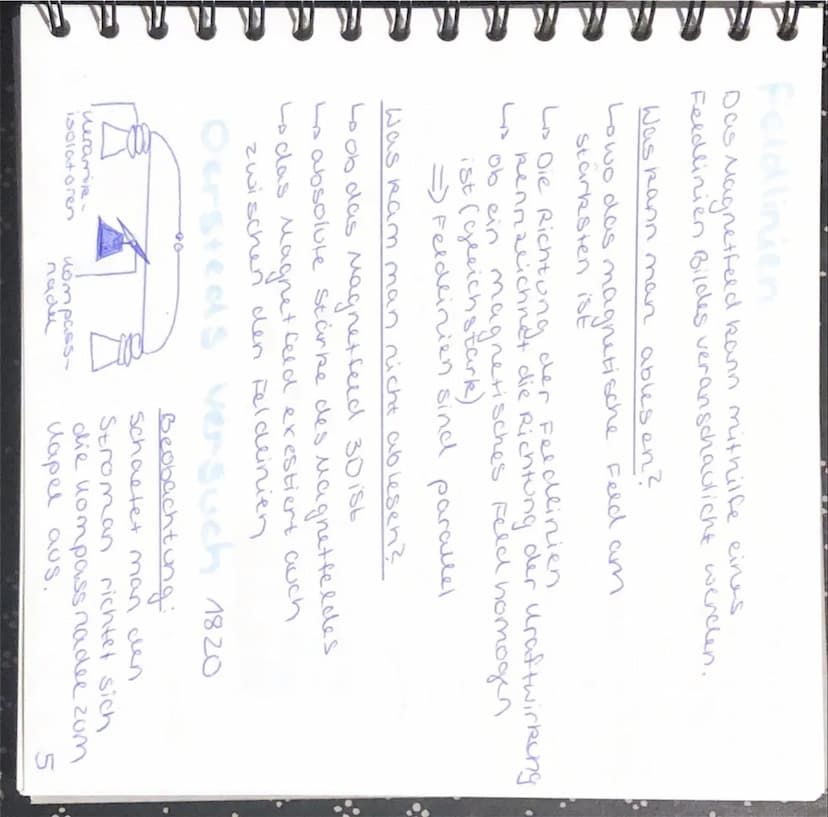 Feldlinien
Das Magnetfeld kann mithilfe eines
Feldlinien Bildes veranschaulicht werden.
Was kann man ablesen?
↳ wo das magnetische Feld am
stärksten ist
↳ Die Richtung der Feldlinien
kennzeichnet die Richtung der Kraftwirkung
↳ ob ein magnetisches Feld homogen
ist (gleichstark)
=> Feldlinien sind parallel
Was kam man nicht ablesen?
↳ ob das Magnetfeld 3D ist
↳ absolute Stärke des Magnetfeldes
↳ das Magnetfeld exestiert auch
zwischen den Feldlinien
Oersteds Versuch 1820
Keramik-
isolatoren
Kompass-
nadel
Beobachtung:
Schaltet man den
Strom an richtet sich
die Kompassnadel zum
Kapel aus.
5